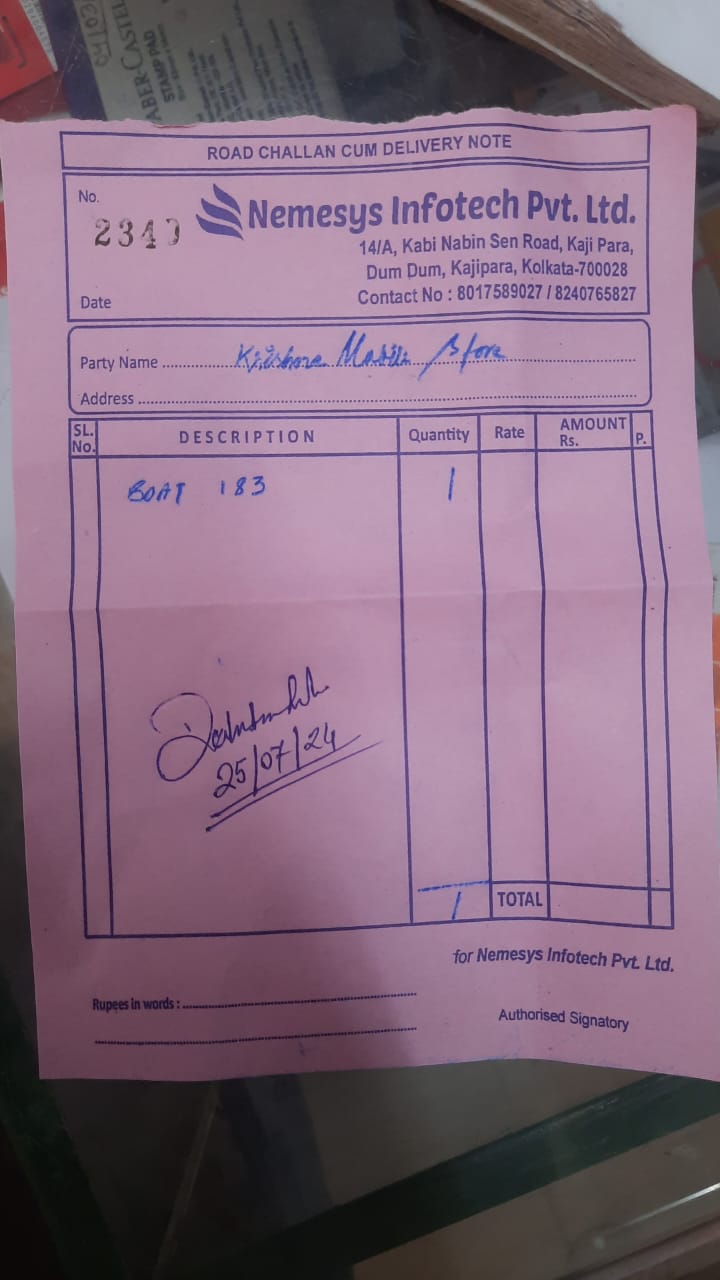 04/03/
ABER-CASTEL
STAMP PAD
ROAD CHALLAN CUM DELIVERY NOTE
No.
2340
Nemesys Infotech Pvt. Ltd.
14/A, Kabi Nabin Sen Road, Kaji Para,
Dum Dum, Kajipara, Kolkata-700028
Contact No : 8017589027 / 8240765827
Date
Party Name Krishna Mobile Store
Address
SL. No. DESCRIPTION Quantity Rate AMOUNT Rs. P.
BOAT 183 1
25/07/24
1 TOTAL
for Nemesys Infotech Pvt. Ltd.
Rupees in words :
Authorised Signatory